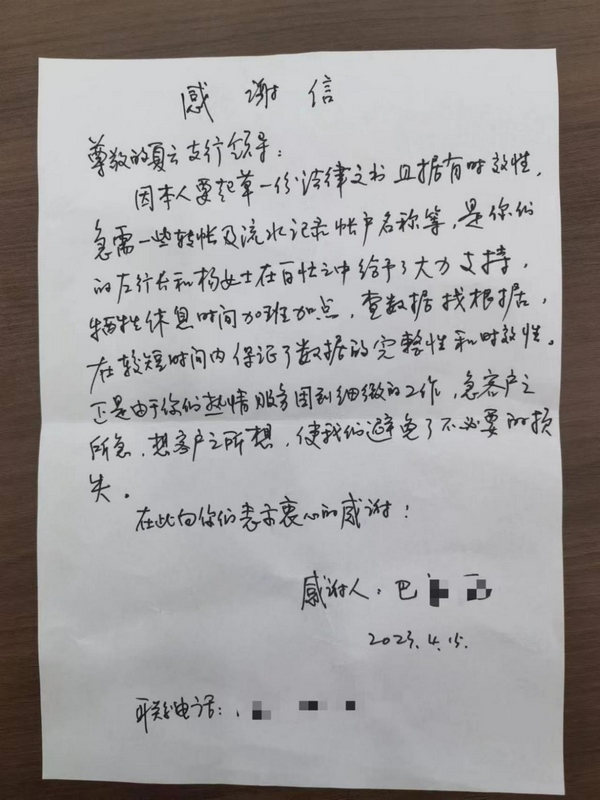 感谢信
尊敬的夏云支行领导：
因本人要起草一份法律文书且据有时效性，
急需一些转帐及流水记录帐户名称等，是你们
的左行长和杨女士在百忙之中给予了大力支持，
牺牲休息时间加班加点，查数据找根据，
在较短时间内保证了数据的完整性和时效性。
正是由于你们热情服务周到细致的工作，急客户之
所急，想客户之所想，使我们避免了不必要的损
失。
在此向你们表示衷心的感谢！
感谢人：巴
2023.4.15.
联系电话：